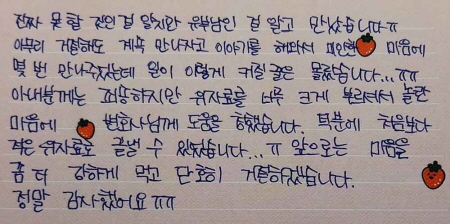 진짜 못 할 짓인걸 알지만 유부남인 걸 알고 만났습니다ㅠ
아무리 거절해도 계속 만나자고 이야기를 해와서 미안한 마음에
몇 번 만나주었는데 일이 이렇게 커질 줄은 몰랐습니다...ㅠㅠ
아내분께는 죄송하지만 위자료를 너무 크게 부르셔서 놀란
마음에 변호사님께 도움을 청했습니다. 덕분에 처음보다
적은 위자료로 끝낼 수 있었습니다...ㅠ 앞으로는 마음을
좀 더 강하게 먹고 단호히 거절하겠습니다.
정말 감사했어요ㅠㅠ